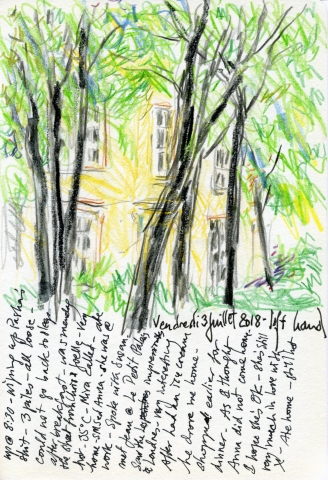 Vendredi 3 juillet 2018 - left hand
up @ 8:30 - wiping up Pasha's
shit - 3 piles - all loose -
couldn't go back to sleep
after breakfast - was finished
the street portraits & reply - Very
hot 35°C - Mira called - ate
home - SMSed Anna she was @
work - Spoke with Susan
met them @ Le Petit Palais
Saw the impressionists
& London - very interesting
After had an ice cream
he drove me home -
shopped earlier for
dinner - As I thought
Anna did not come home
I hope she's OK - she's still
very much in love with
X - At home - still hot